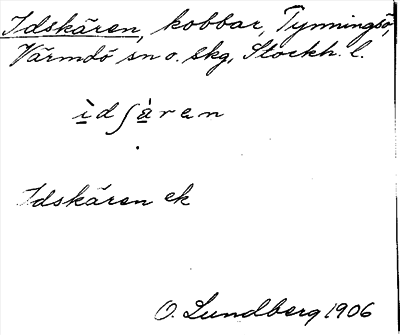 Idskären, kobbar, Tynningsö,
Värmdö sn o. skg, Stockh. l.
ìdʃàren
Idskären ek
O. Lundberg 1906